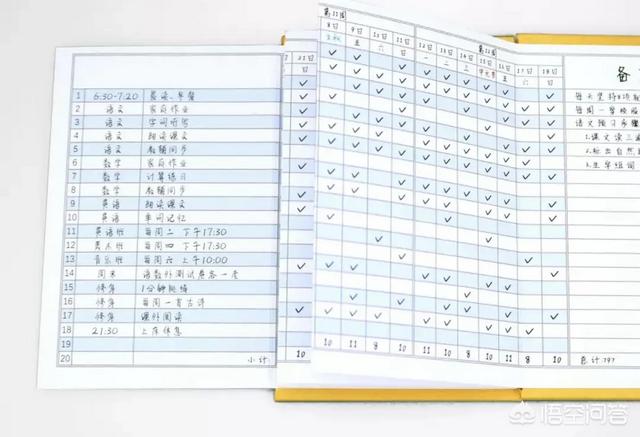 第11周 第12周
8日 9日 10日 11日 12日 13日 14日 15日 16日 17日 18日
五 六 日 一 二 三 五 六 日
21日
日
1 6:30-7:20 晨读、早餐
2 语文 家庭作业
3 语文 字词听写
4 语文 朗读课文
5 语文 教辅同步
6 数学 家庭作业
7 数学 计算练习
8 数学 教辅同步
9 英语 朗读课文
10 英语 单词记忆
11 英语班 每周二 下午17:30
12 美术班 每周四 下午17:30
13 音乐班 每周六 上午10:00
14 周末 语数外测试卷各一套
15 作息 1分钟跳绳
16 每周一首古诗
17 课外阅读
18 21:30 上床休息
19
20 小计:
10 10 11 8 10 11 11 10 10 11 8 10
备
每天坚持
每周一
语文预习
1.课文读三遍
2.标出自然
3.生字组词
总计:797
悟空问答